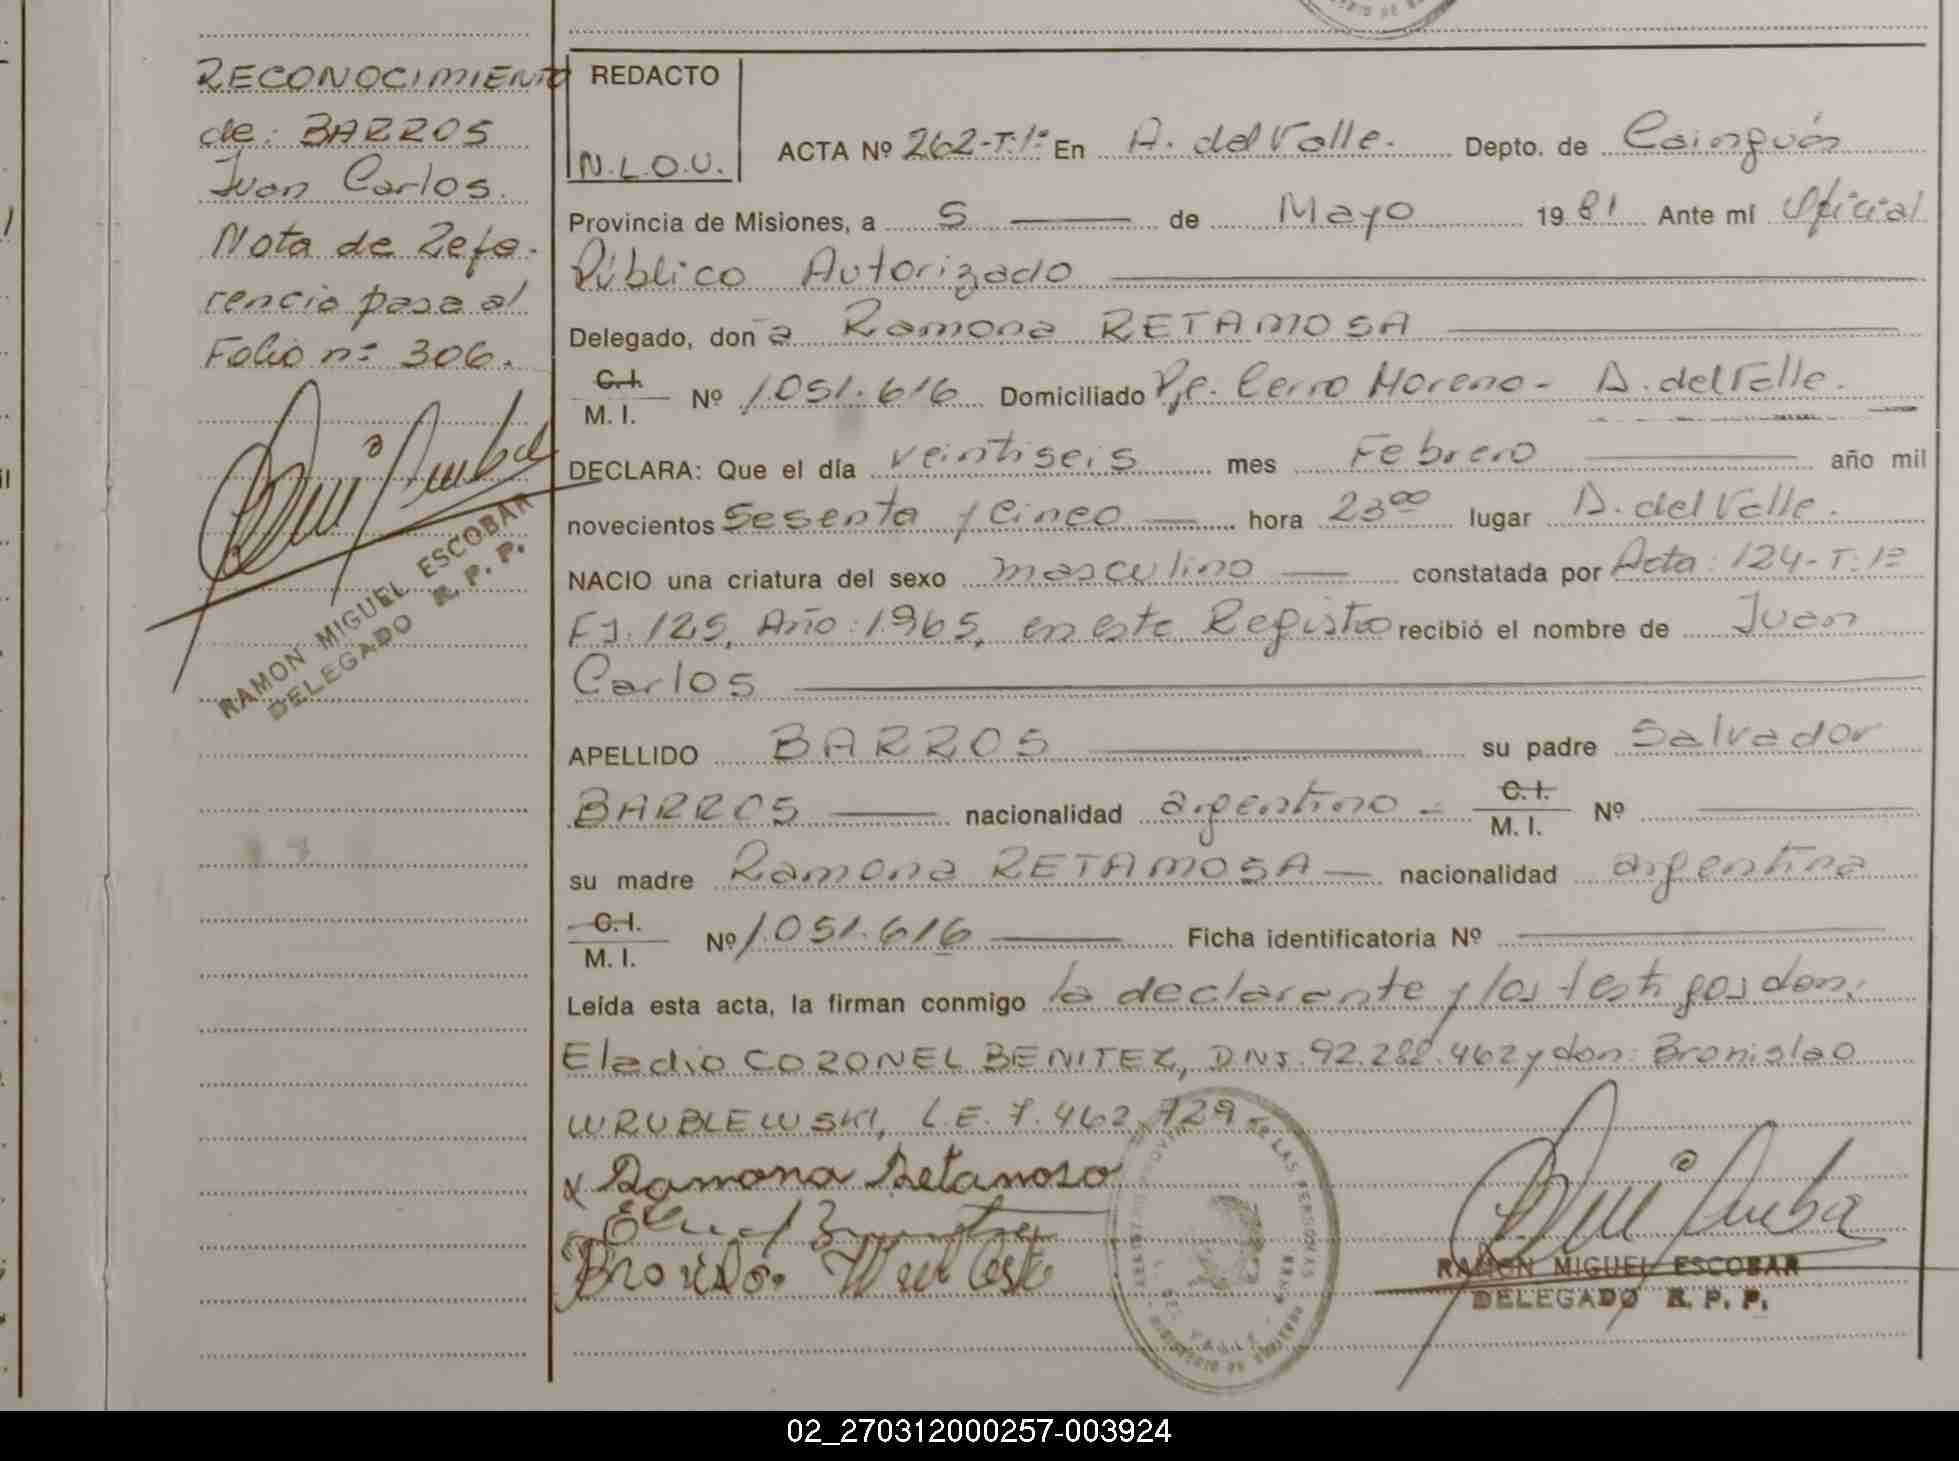 RECONOCIMIENTO
de: BARROS
Juan Carlos.
Nota de Refe-
rencia pasa al
Folio nº 306.
RAMON MIGUEL ESCOBAR
DELEGADO R. P. P.
REDACTO
N.L.O.U.
ACTA Nº 262-T:1º En A. del Valle. Depto. de Cainguás
Provincia de Misiones, a 5 de Mayo 1981 Ante mí Oficial
Público Autorizado
Delegado, doña Ramona RETAMOSA
C.I.
M. I. Nº 1.051.616 Domiciliado Pje. Cerro Moreno - A. del Valle.
DECLARA: Que el día veintiseis mes Febrero año mil
novecientos Sesenta y Cinco hora 23⁰⁰ lugar A. del Valle.
NACIO una criatura del sexo masculino constatada por Acta: 124-T:1º
Fº: 125, Año: 1965, en este Registro recibió el nombre de Juan
Carlos
APELLIDO BARROS su padre Salvador
BARROS nacionalidad argentino - C.I. M. I. Nº
su madre Ramona RETAMOSA nacionalidad argentina
C.I.
M. I. Nº 1.051.616 Ficha identificatoria Nº
Leída esta acta, la firman conmigo la declarante y los testigos don:
Eladio CORONEL BENITEZ, DNI. 92.282.462 y don: Bronislao
WRUBLEWSKI, L.E. 7.462.729
x Ramona Retamoso
RAMON MIGUEL ESCOBAR
DELEGADO R. P. P.
DE LAS PERSONAS
02_270312000257-003924